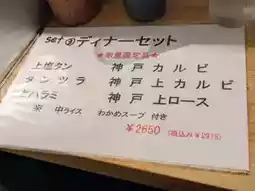 set③ディナーセット
★数量限定品★
上塩タン 神戸カルビ
タンツラ 神戸上カルビ
上ハラミ 神戸上ロース
※ 中ライス わかめスープ 付き
¥2650 (税込み¥2915)